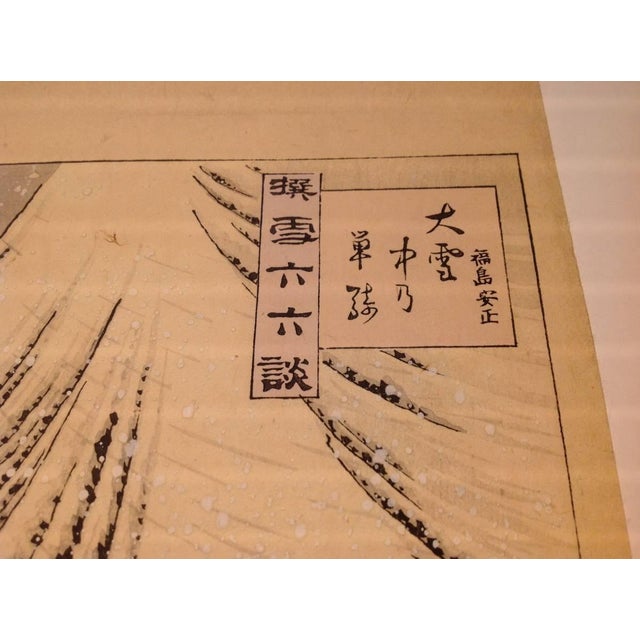 福島安正
大雪
中乃
単騎
撰雪六六談